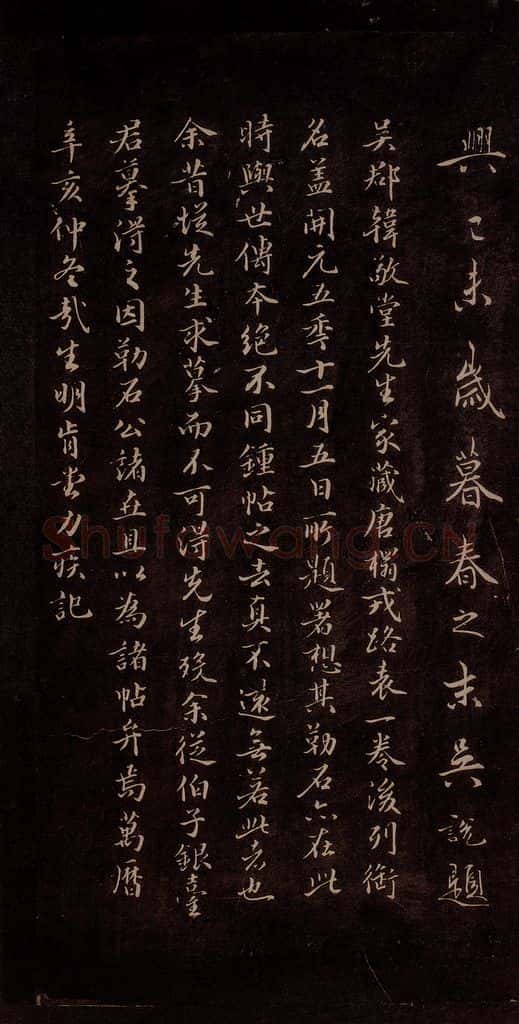 興己未歲暮春之末吳說題
吳郡韓敬堂先生家藏唐搨戎路表一卷後列銜
名蓋開元五年十一月五日所題署想其勒石亦在此
時與世傳本絕不同鍾帖之去真不遠無若此者也
余昔從先生求摹而不可得先生歿余從伯子銀臺
君摹得之因勒石公諸世且以為諸帖弁焉萬曆
辛亥仲冬哉生明肯堂力疾記
Shufawang.CN